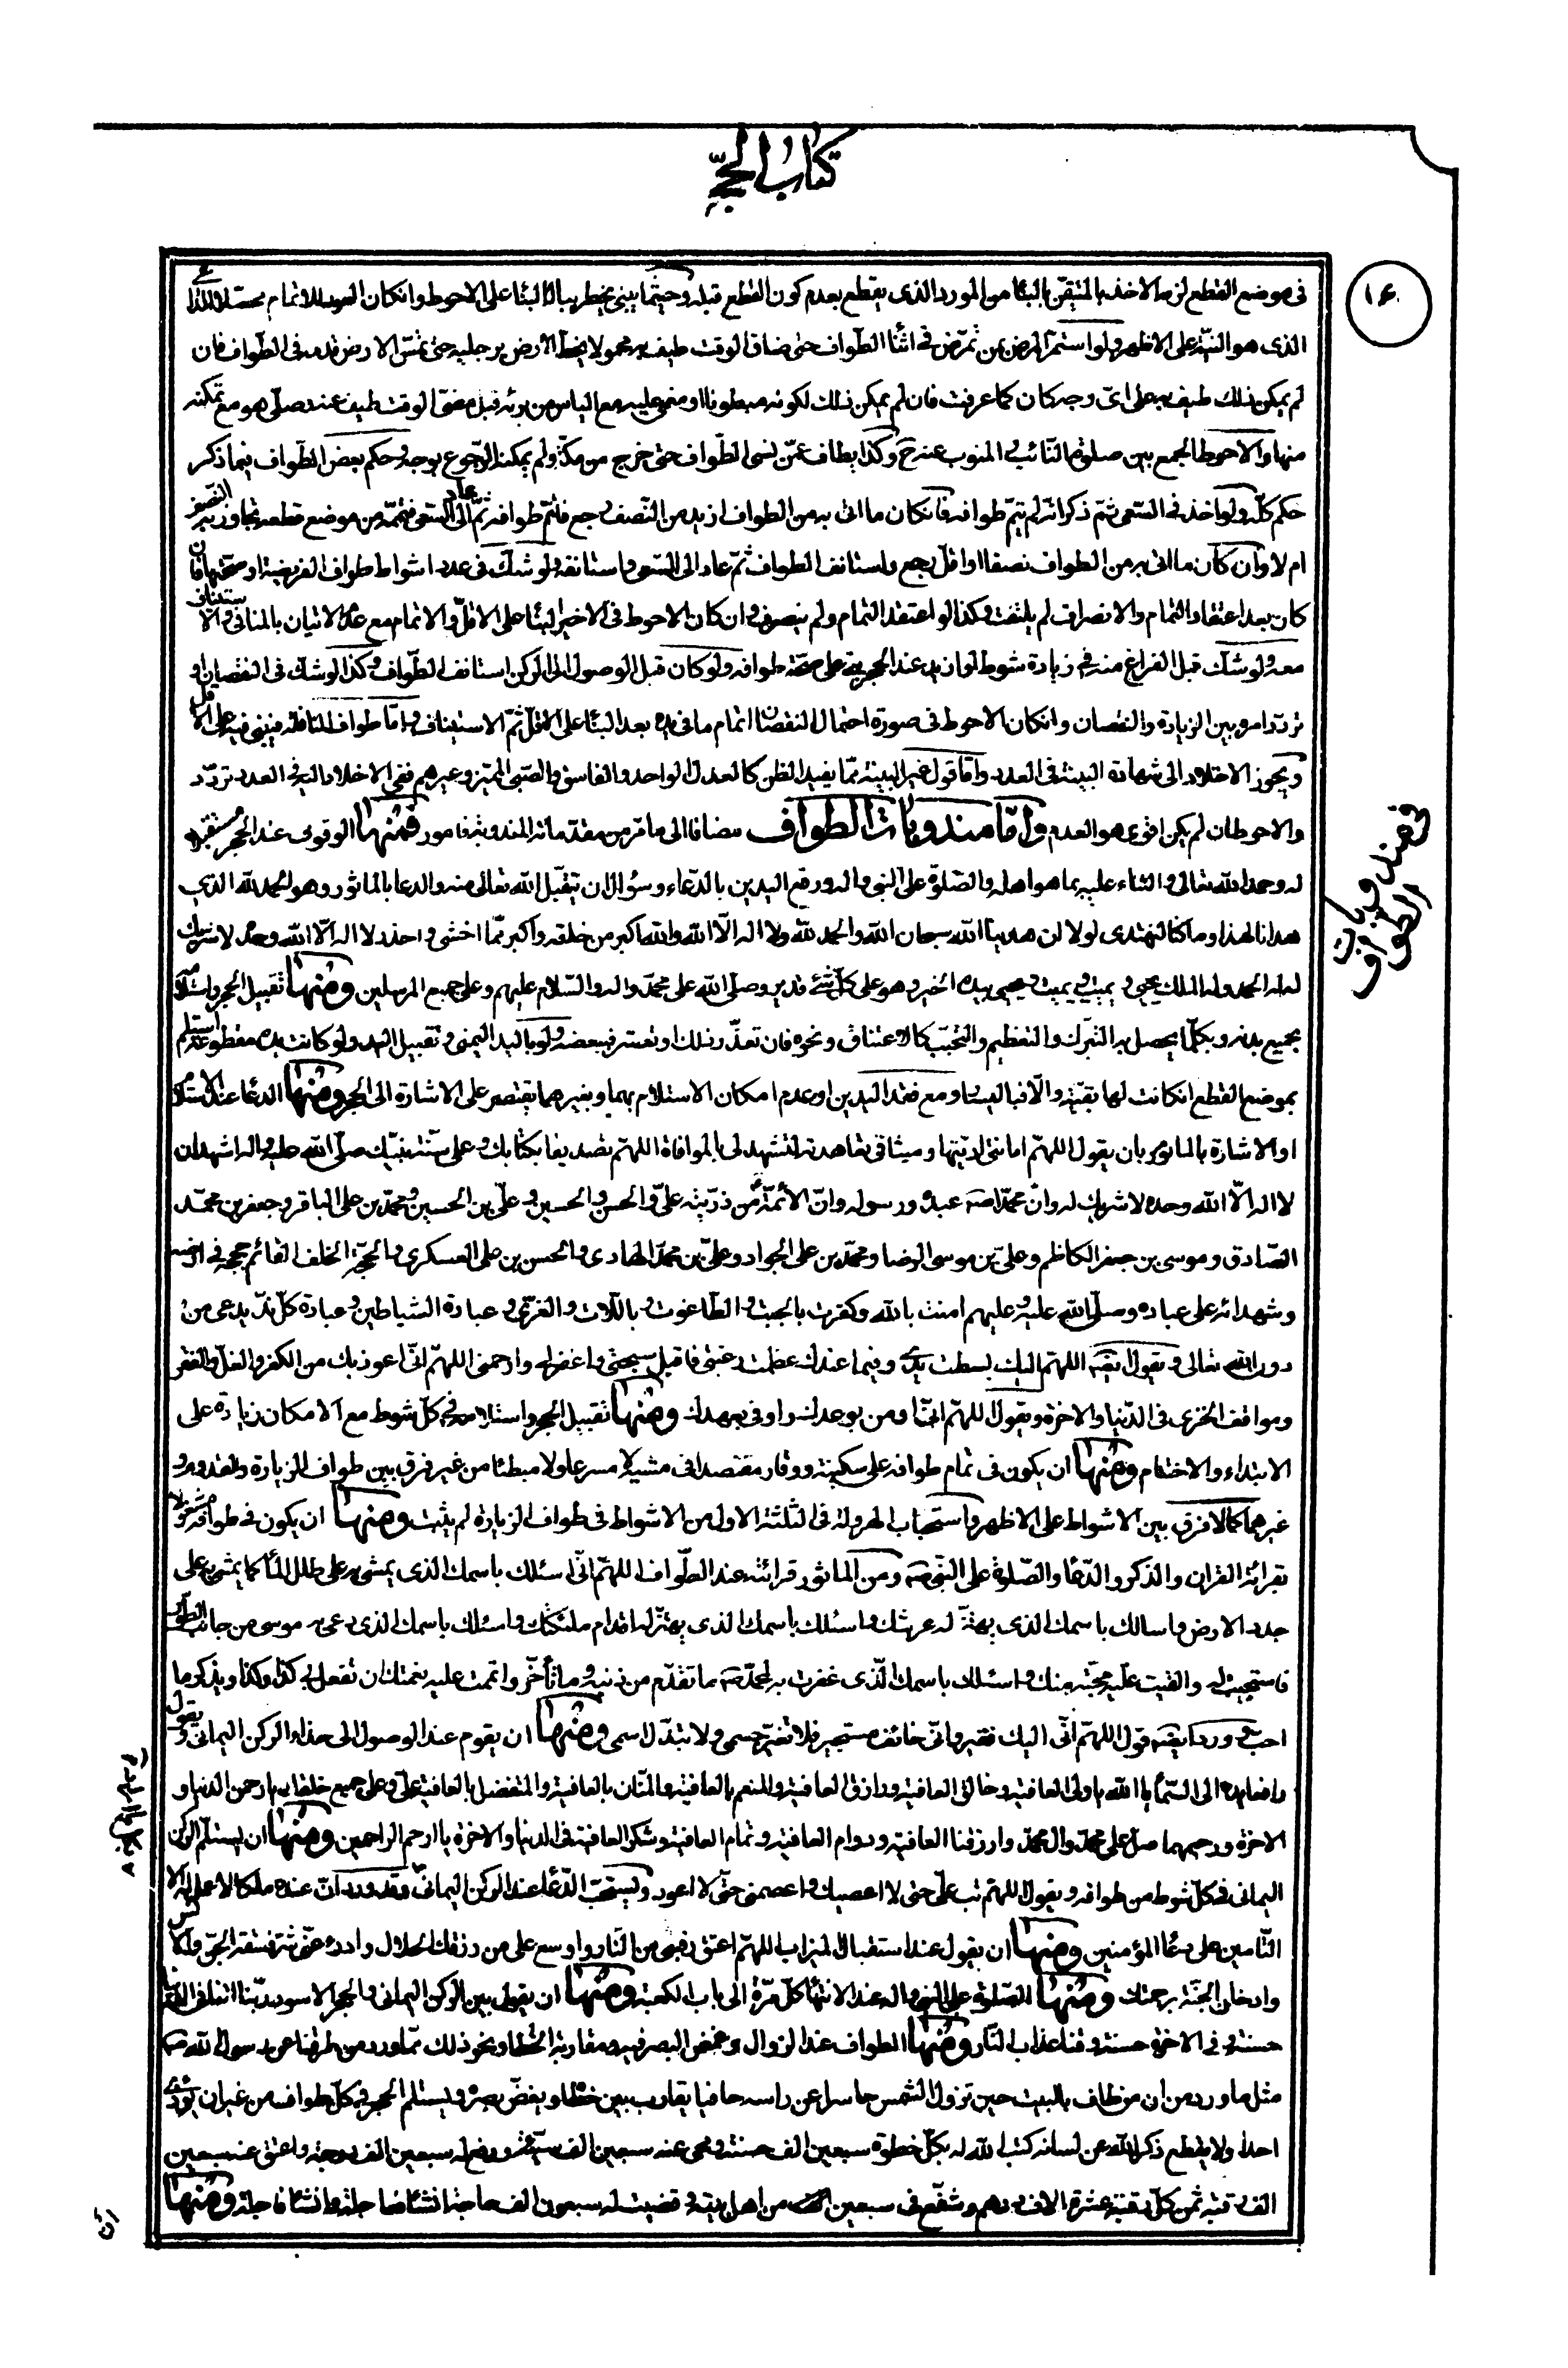 كتاب الحجّ
١٤٠
فى موضع القطع لزمه الاخذ بالمتيقّن بالبناء من المورد الذى يقطع بعدم كون القطع قبله وحيثما يبنى يخطر بباله البناء على الاحوط وانكان العود للاتمام محصّلا للنداء
الذى هو النيّة على الاظهر ولو استمرّ المرض بمن تمرّض فى اثناء الطّواف حتى ضاق الوقت طيف به محمولا يخطّ الارض برجليه حتى تمسّ الارض قدمه فى الطّواف فان
لم يمكن ذلك طيف به على اىّ وجه كان كما عرفت فان لم يمكن ذلك لكونه مبطونا او مغمى عليه مع الياس من برئه قبل مضىّ الوقت طيف عنه وصلّى هو مع تمكّنه
منها والاحوط الجمع بين صلوة النّائب والمنوب عنه ح وكذا يطاف عمّن نسى الطّواف حتى خرج من مكّة ولم يمكنه الرّجوع بوجه وحكم بعض الطّواف فيما ذكر
حكم كلّه ولو اخذ فى السّعى ثمّ ذكر انّه لم يتمّ طوافه فانكان ما اتى به من الطواف ازيد من النّصف رجع فاتمّ طوافه ثمّ عاد الى السّعى فتمّمه من موضع قطعه تجاوز به النّصف
ام لا وان كان ما اتى به من الطواف نصفا او اقلّ رجع واستانف الطواف ثمّ عاد الى السّعى واستانفه ولو شكّ فى عدد اشواط طواف الفريضة او صحّتها فان
كان بعد اعتقاد التمام والانصراف لم يلتفت وكذا لو اعتقد التمام ولم ينصرف وان كان الاحوط فى الاخير البناء على الاقلّ والاتمام مع عدم الاتيان بالمنافى والاستيناف
معه ولو شكّ قبل الفراغ منه فى زيادة شوط او ازيد عند الحجر بنى على صحّة طوافه ولو كان قبل الوصول الى الركن استانف الطّواف وكذا لو شكّ فى النقصان او
تردّد امره بين الزيادة والنقصان وانكان الاحوط فى صورة احتمال النقصان اتمام ما فى يده بعد البناء على الاقلّ ثمّ الاستيناف وامّا طواف النافلة فيبنى فيه على الاقل
ويجوز الاخلاد الى شهادة البيّنة فى العدد وامّا قول غير البيّنة ممّا يفيد الظن كالعدل الواحد والفاسق والصّبىّ المميّز وغيرهم ففى الاخلاد اليه فى العدد تردّد
والاحوط ان لم يكن اقوى هو العدم وامّا مندوبات الطواف مضافا الى ما مرّ من مقدّماته المندوبة فامور فمنها الوقوف عند الحجر مستقبلا
له وحمد الله تعالى والثناء عليه بما هو اهله والصّلوة على النبى واله ورفع اليدين بالدّعاء وسؤال ان يتقبّل الله تعالى منه والدعا بالماثور وهو الحمد لله الذى
هدانا لهذا وما كنّا لنهتدى لولا ان هدينا الله سبحان الله والحمد لله ولا اله الّا الله والله اكبر من خلقه واكبر ممّا اخشى واحذر لا اله الّا الله وحده لا شريك
له له الملك وله الحمد يحيى ويميت ويميت ويحيى بيده الخير وهو على كلّ شئ قدير وصلّى الله على محمّد واله والسّلام عليهم وعلى جميع المرسلين ومنها تقبيل الحجر واستلامه
بجميع بدنه وبكلّ ما يحصل به التبرّك والتعظيم والتحبّب كالاعتناق ونحوه فان تعذّر ذلك او تعسّر فببعضه ولو باليد اليمنى وتقبيل اليد ولو كانت يده مقطوعة استلم
بموضع القطع انكانت لها بقيّة والّا فباليسار ومع فقد اليدين او عدم امكان الاستلام بهما وبغيرهما يقتصر على الاشارة الى الحجر ومنها الدعاء عند الاستلام
او الاشارة بالماثور بان يقول اللهمّ امانتى ادّيتها وميثاقى تعاهدته لتشهد لى بالموافاة اللهمّ تصديقا بكتابك وعلى سنّة نبيّك صلّى الله عليه واله اشهد ان
لا اله الّا الله وحده لا شريك له وانّ محمّدا ص عبده ورسوله وانّ الأئمّة من ذرّيّته علىّ والحسن والحسين وعلىّ بن الحسين ومحمّد بن على الباقر وجعفر بن محمّد
الصّادق وموسى بن جعفر الكاظم وعلىّ بن موسى الرضا ومحمّد بن على الجواد وعلىّ بن محمّد الهادى والحسن بن على العسكرى والحجّة الخلف القائم حججه فى ارضه
وشهدائه على عباده وصلّى الله عليه وعليهم امنت بالله وكفرت بالجبت والطّاغوت وباللّات والعزّى وعبادة الشياطين وعبادة كلّ ندّ يدعى من
دون الله تعالى ويقول ايضا اللهمّ اليك بسطت يدى وفيما عندك عظمت رغبتى فاقبل سبحتى واغفر لى وارحمنى اللهمّ انّى اعوذ بك من الكفر والفقر
ومواقف الخزى فى الدّنيا والاخرة ويقول اللهمّ امنّا ومن بوعدك واوفى بعهدك ومنها تقبيل الحجر واستلامه فى كلّ شوط مع الامكان زيادة على
الابتداء والاختتام ومنها ان يكون فى تمام طوافه على سكينة ووقار مقتصدا فى مشيه لا مسرعا ولا مبطئا من غير فرق بين طواف الزيارة والقدوم و
غيرهما كما لا فرق بين الاشواط على الاظهر واستحباب الهرولة فى الثلثة الاول من الاشواط فى طواف الزيارة لم يثبت ومنها ان يكون فى طوافه مشغولا
بقرائة القران والذكر والدّعاء والصّلوة على النّبى ص ومن الماثور قرائته عند الطّواف اللهمّ انّى اسئلك باسمك الذى يمشى به على طلل الماء كما يمشى به على
جدد الارض واسالك باسمك الذى يهتزّ له عرشك واسئلك باسمك الذى يهتزّ له اقدام ملئكتك واسئلك باسمك الذى دعى به موسى من جانب الطور
فاستجبت له والقيت عليه محبّة منك واسئلك باسمك الّذى غفرت به لمحمّد ص ما تقدّم من ذنبه وما تأخّر واتممت عليه نعمتك ان تفعل بى كذا وكذا ويذكر ما
احبّ وورد ايضا قول اللهمّ انّى اليك فقير وانّى خائف مستجير فلا تغيّر جسمى ولا تبدّل اسمى ومنها ان يقوم عند الوصول الى حذاء الركن اليمانى ويقول
رافعا يده الى السّماء يا الله يا ولىّ العافية وخالق العافية ورازق العافية والمنعم بالعافية والمنّان بالعافية والمتفضل بالعافية علىّ وعلى جميع خلقك يا رحمن الدنيا و
الاخرة ورحيمهما صلّ على محمّد وال محمّد وارزقنا العافية ودوام العافية وتمام العافية وشكر العافية فى الدنيا والاخرة يا ارحم الراحمين ومنها ان يستلم الركن
اليمانى فى كلّ شوط من طوافه ويقول اللهمّ تب علىّ حتى لا اعصيك واعصمنى حتّى لا اعود ويستحبّ الدّعاء عند الركن اليمانىّ وقد ورد انّ عنده ملكا لا عمل له الّا
التّامين على دعاء المؤمنين ومنها ان يقول عند استقبال الميزاب اللهمّ اعتق رقبتى من النّار واوسع على من رزقك الحلال وادرء عنّى شرّ فسقة الجنّ والانس
وادخلنى الجنّة برحمتك ومنها الصّلوة على النّبى واله عند الانتهاء كلّ مرّة الى باب الكعبة ومنها ان يقول بين الركن اليمانى والحجر الاسود ربّنا اتنا فى الدنيا
حسنة وفى الاخرة حسنة وقنا عذاب النّار ومنها الطواف عند الزوال وغضّ البصر فيه ومقاربة الخطا ونحو ذلك ممّا ورد من طرقنا عن رسول الله ص
مثل ما ورد من ان من طاف بالبيت حين تزول الشمس حاسرا عن راسه حافيا يقارب بين خطاه ويغضّ بصره ويستلم الحجر فى كلّ طواف من غير ان يؤذى
احدا ولا يقطع ذكر الله عن لسانه كتب الله له بكلّ خطوة سبعين الف حسنة ومحى عنه سبعين الف سيّئة ورفع له سبعين الف درجة واعتق عنه سبعين
الف رقبة ثمن كلّ رقبة عشرة الاف درهم وشفّع فى سبعين من اهل بيته وقضيت له سبعون الف حاجة ان شاء فعاجلة وان شاء فاجلة ومنها
فى مندوبات
الطواف
ان